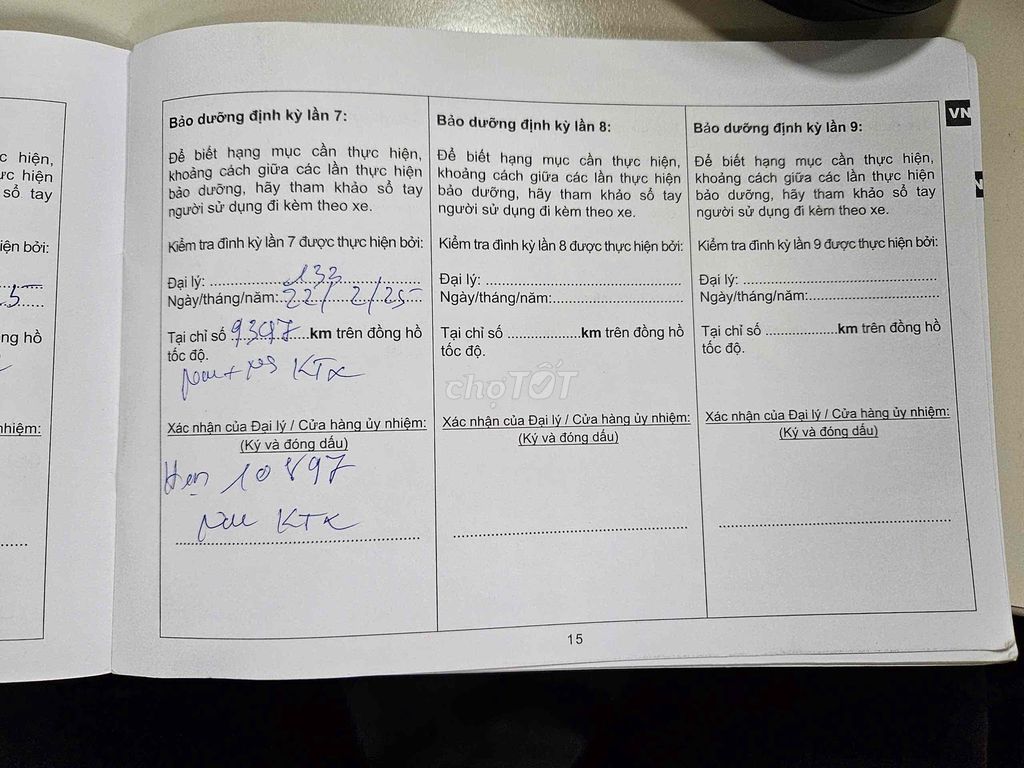 c hiện,
ực hiện
sổ tay
iện bởi:
5
ng hồ
nhiệm:
Bảo dưỡng định kỳ lần 7:
Để biết hạng mục cần thực hiện,
khoảng cách giữa các lần thực hiện
bảo dưỡng, hãy tham khảo sổ tay
người sử dụng đi kèm theo xe.
Kiểm tra đình kỳ lần 7 được thực hiện bởi:
Đại lý: 133
Ngày/tháng/năm: 22/2/25
Tại chỉ số 9397 km trên đồng hồ
tốc độ.
KTX
Xác nhận của Đại lý / Cửa hàng ủy nhiệm:
(Ký và đóng dấu)
Hẹn 10897
KTX
Bảo dưỡng định kỳ lần 8:
Để biết hạng mục cần thực hiện,
khoảng cách giữa các lần thực hiện
bảo dưỡng, hãy tham khảo sổ tay
người sử dụng đi kèm theo xe.
Kiểm tra đình kỳ lần 8 được thực hiện bởi:
Đại lý:
Ngày/tháng/năm:
Tại chỉ số ..................km trên đồng hồ
tốc độ.
chợTỐT
Xác nhận của Đại lý / Cửa hàng ủy nhiệm:
(Ký và đóng dấu)
Bảo dưỡng định kỳ lần 9:
Để biết hạng mục cần thực hiện,
khoảng cách giữa các lần thực hiện
bảo dưỡng, hãy tham khảo sổ tay
người sử dụng đi kèm theo xe.
Kiểm tra đình kỳ lần 9 được thực hiện bởi:
Đại lý:
Ngày/tháng/năm:
Tại chỉ số ..................km trên đồng hồ
tốc độ.
Xác nhận của Đại lý / Cửa hàng ủy nhiệm:
(Ký và đóng dấu)
VN
15